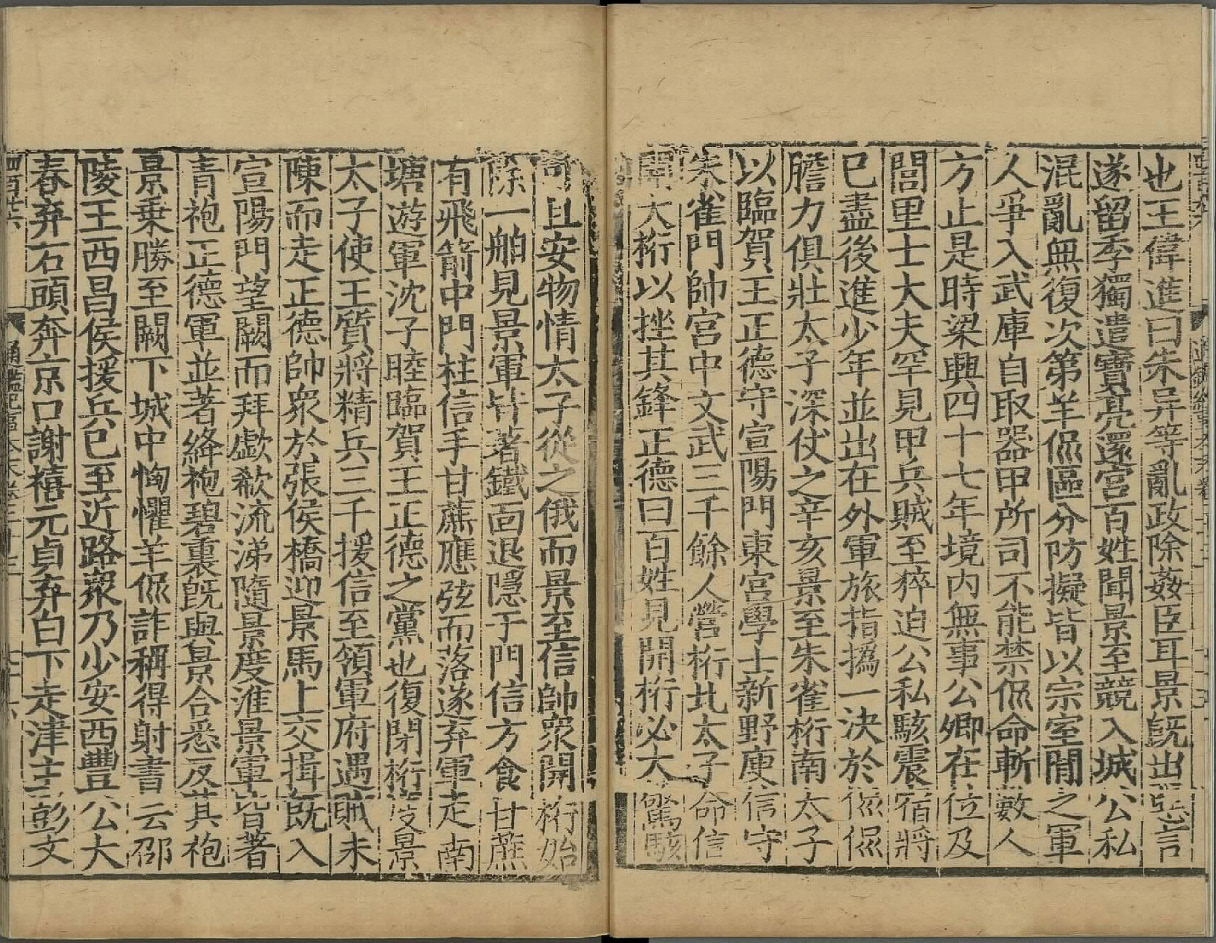 也王偉進曰朱异等亂政除姦臣耳景旣出惡言
遂留季獨遣寶亮還宮百姓聞景至競入城公私
混亂無復次第羊侃區分防擬皆以宗室閒之軍
人爭入武庫自取器甲所司不能禁侃命斬數人
方止是時梁興四十七年境內無事公卿在位及
閭里士大夫罕見甲兵賊至猝迫公私駭震宿將
已盡後進少年並出在外軍旅指撝一決於侃侃
膽力俱壯太子深仗之辛亥景至朱雀桁南太子
以臨賀王正德守宣陽門東宮學士新野庾信守
朱雀門帥宮中文武三千餘人營桁北太子命信
開大桁以挫其鋒正德曰百姓見開桁必大驚駭
可且安物情太子從之俄而景至信帥衆開桁始
除一舶見景軍皆著鐵面退隱于門信方食甘蔗
有飛箭中門柱信手甘蔗應弦而落遂弃軍走南
塘遊軍沈子睦臨賀王正德之黨也復閉桁度景
太子使王質將精兵三千援信至領軍府遇賊未
陳而走正德帥衆於張侯橋迎景馬上交揖旣入
宣陽門望闕而拜歔欷流涕隨景度淮景軍皆著
青袍正德軍並著絳袍碧裏旣與景合悉反其袍
景乘勝至闕下城中恟懼羊侃詐稱得射書云邵
陵王西昌侯援兵已至近路衆乃少安西豐公大
春弃石頭奔京口謝禧元貞弃白下走津主彭文